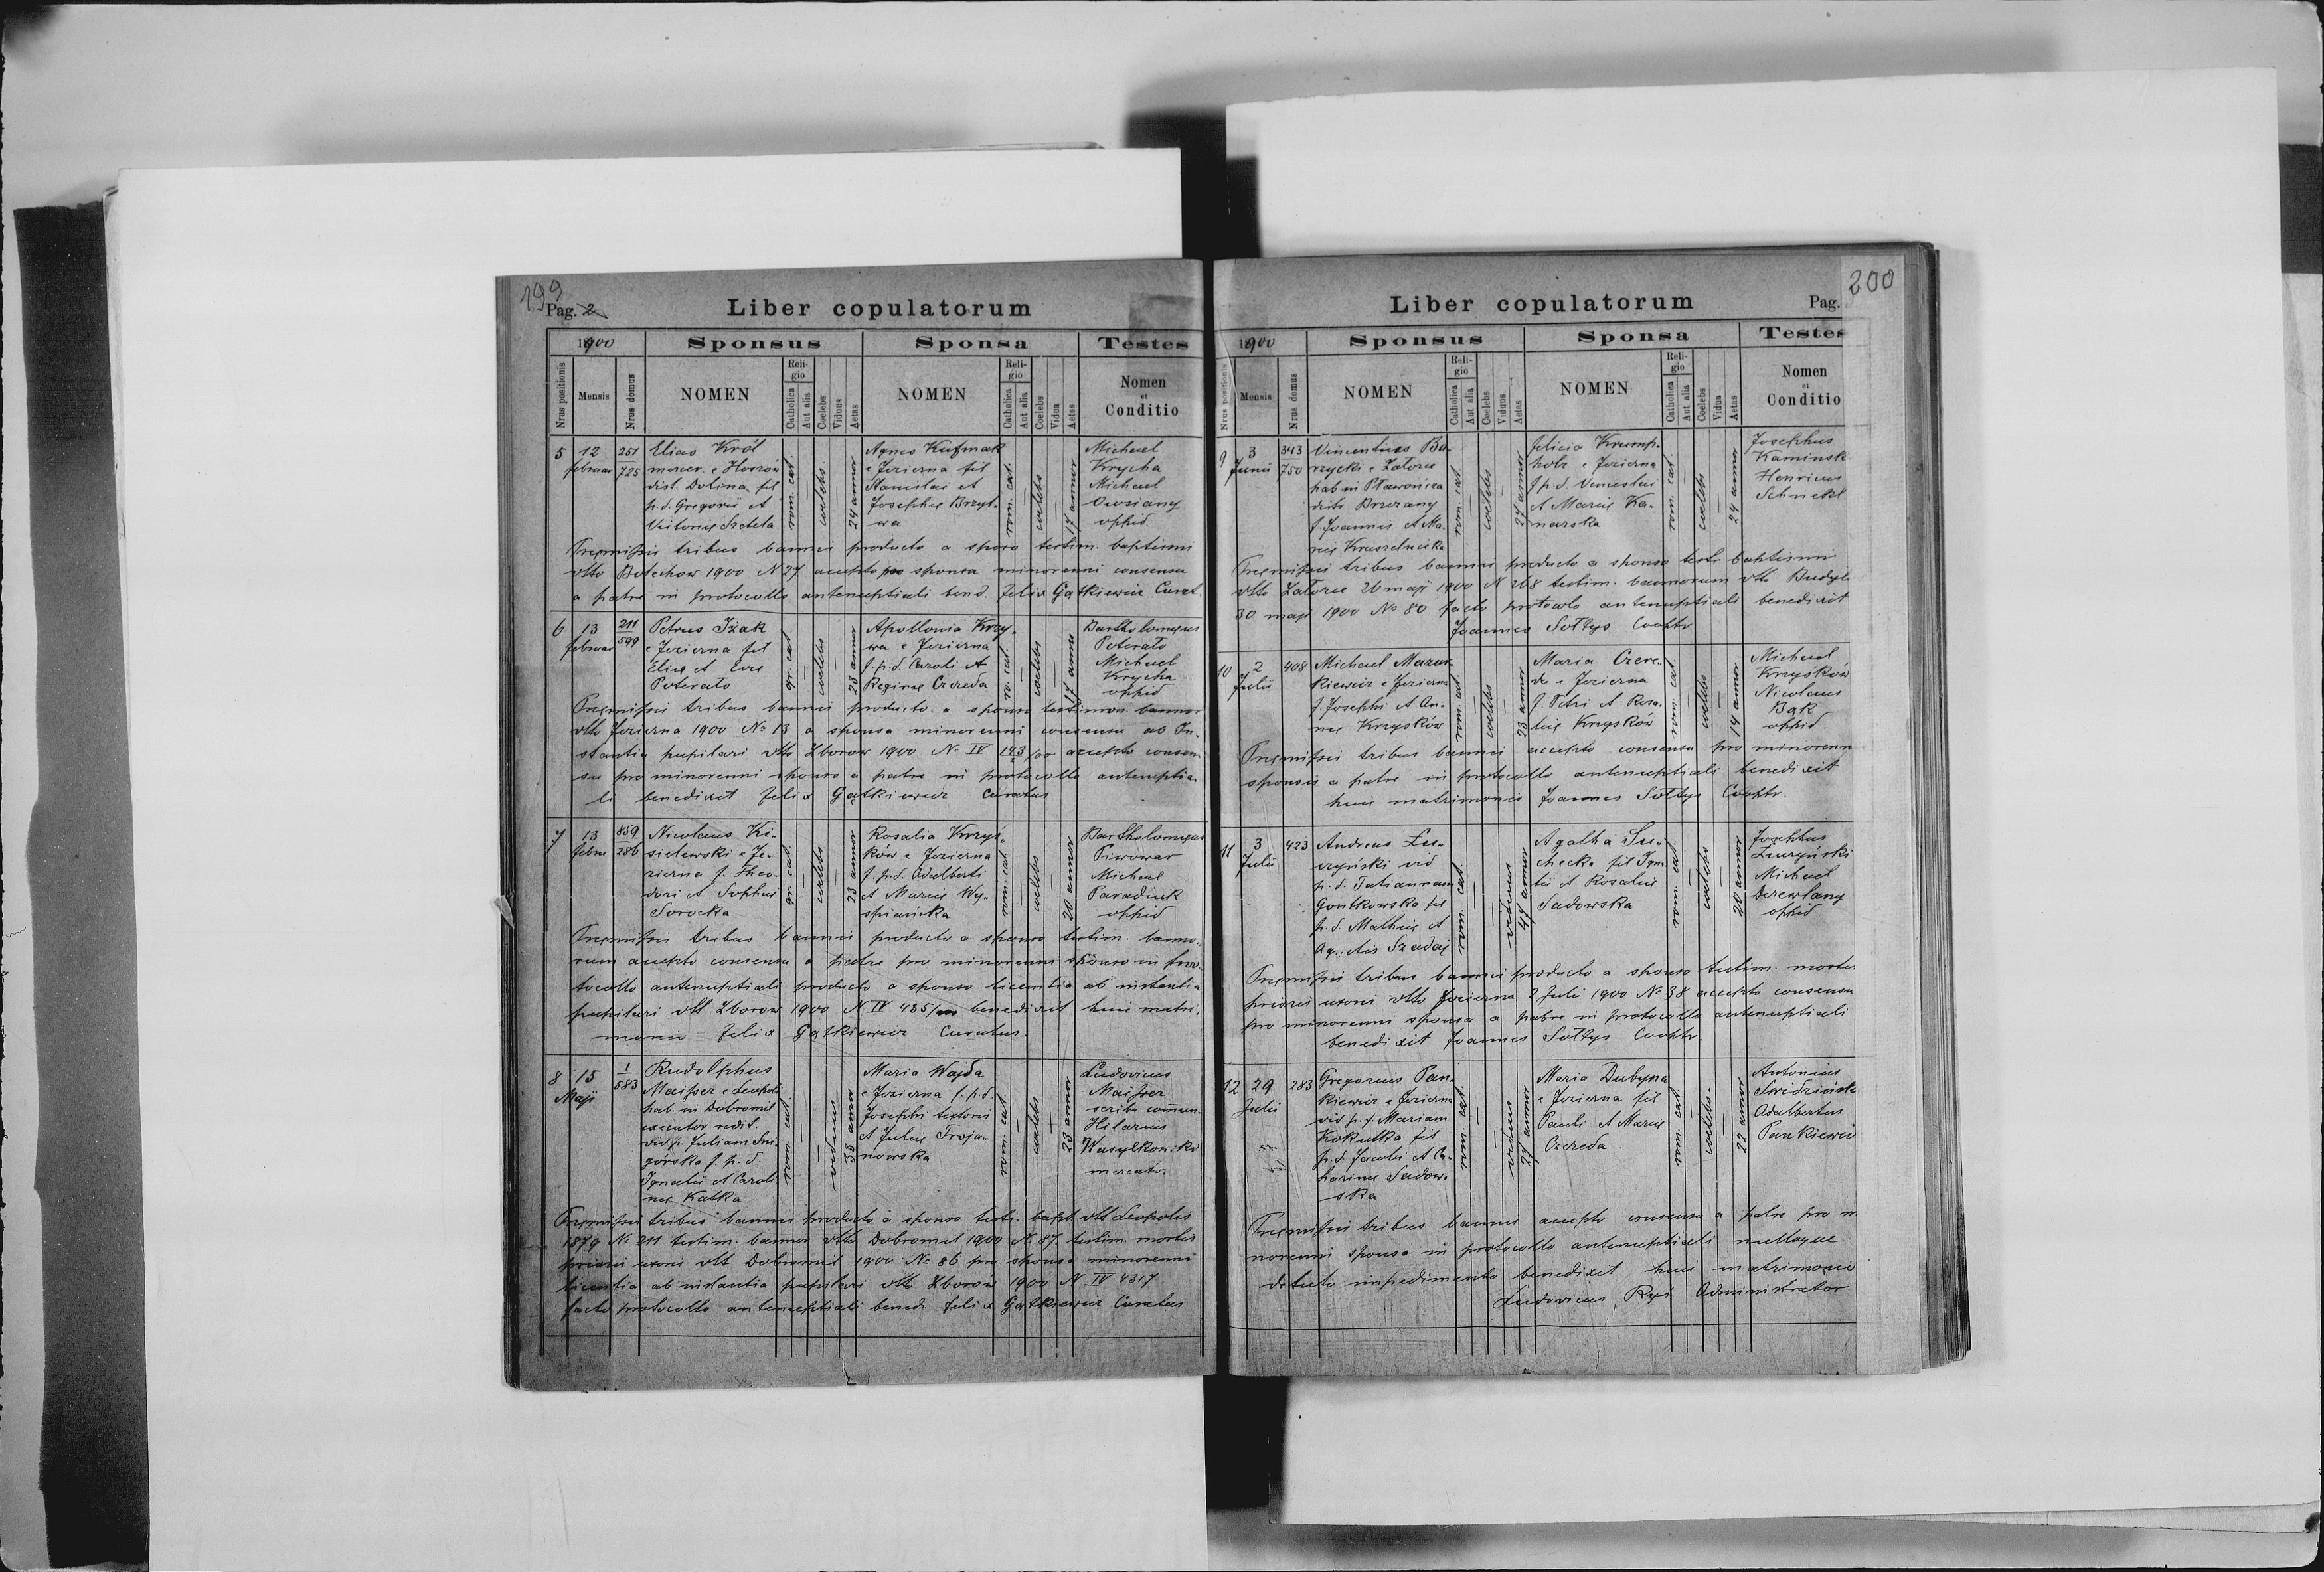 199
Pag. 2
Liber copulatorum
1900
Sponsus
Sponsa
Testes
Nrus positionis
Mensis
Nrus domus
NOMEN
Religio
Catholica
Aut alia
Coelebs
Viduus
Aetas
NOMEN
Religio
Catholica
Aut alia
Coelebs
Vidua
Aetas
Nomen
et
Conditio
5
12
februar
251
725
Elias Król
e Hoszów
dist. Dolina fil
p. d. Gregorii et
Victorie Szetela
rom. cat.
coelebs
24 annor
Agnes
e Jezierna fil
Stanislai et
Josephe Brzyt-
wa
rom. cat.
coelebs
17 annor
Michael
Krycha
Michael
Owsiany
oppid
Premissis tribus bannis producto a sponso testim. baptismi
dtto Bolechow 1900 N 27 accepto pro sponsa minorenni consensu
a patre in protocollo antenuptiali bened. Felix Gątkiewicz Curat.
6
13
februar
211
599
Petrus Iżak
e Jezierna fil
Elie et Eve
Poterało
gr. cat
coelebs
23 annor
Apollonia Krzy-
wa e Jezierna
f. p. d. Caroli et
Regine Czereda
ro. cat.
coelebs
17 annor
Bartholomeus
Poterało
Michael
Krycha
oppid
Premissis tribus bannis producto a sponso testimon. bannor
dtto Jezierna 1900 No 13 a sponsa minorenni consensu ab In-
stantia pupilari dtto Zborow 1900 No IV 143/2 /00 accepto consen-
su pro minorenni sponso a patre in protocollo antenuptia-
li benedixit Felix Gątkiewicz Curatus
7
13
febru
859
286
Nicolaus Ki-
sielewski e Je-
zierna f. Theo-
dori et Sophie
Sorocka
gr. cat
coelebs
23 annor
Rosalia Krzyś-
ków e Jezierna
f. p. d. Adalberti
et Marie Wy-
spiańska
rom. cat
coelebs
20 annor
Bartholomeus
Piwowar
Michael
Paradiuk
oppid
Premissis tribus bannis producto a sponso testim. banno-
rum accepto consensu a patre pro minorenni sponso in pro-
tocollo antenuptiali producto a sponso licentia ab instantia
pupilari dtt Zborow 1900 N IV 435/ benedixit huic matri-
monio Felix Gątkiewicz Curatus.
8
15
Maji
1
583
Rudolphus
Maisser e Leopoli
hab. in Dobromil
executor redit.
vid p. Juliam Śni-
górska f. p. d.
Ignatii et Caroli
ne Katka
rom. cat.
viduus
33 annor
Maria Wajda
e Jezierna f. p. d
Josephi textoris
et Julie Troja-
nowska
rom. cat.
coelebs
23 annor
Ludovicus
Maisser
scriba commun.
Hilarius
mercator
Premissis tribus bannis producto a sponso testi. bapt. dtt Leopolis
1879 N. 211 testim. bannor dtto Dobromil 1900 N. 87. testim. mortis
prioris uxoris dtt Dobromil 1900 No 86 pro sponsa minorenni
licentia ab instantia pupilari dtto Zborow 1900 N IV 4317
facto protocollo antenuptiali bened. Felix Gątkiewicz Curatus
200
Liber copulatorum
Pag.
1900
Sponsus
Sponsa
Testes
Nrus positionis
Mensis
Nrus domus
NOMEN
Religio
Catholica
Aut alia
Coelebs
Viduus
Aetas
NOMEN
Religio
Catholica
Aut alia
Coelebs
Vidua
Aetas
Nomen
et
Conditio
9
3
Junii
343
750
Vincentius Ba-
rzycki e Zatorze
hab in
distr Brzezany
f. Joannis et Ma-
rie
rom. cat
coelebs
27 annor
Felicia Krump-
holz e Jezierna
f p. d. Venceslai
et Marie Ka-
narska
rom. cat
coelebs
24 annor
Josephus
Kaminsk
Henricus
Schnekl
Premissis tribus bannis producto a sponso testi baptismi
dtto Zatorze 26 maji 1900 N 268 testim. bannorum dtto
30 maji 1900 No 80 facto protocolo antenuptiali benedixit
Joannes Sołtys Cooptr
10
2
Julii
408
Michael Mazur-
kiewicz e Jezierna
f. Josephi et An-
ne Krzysków
rom. cat.
coelebs
23 annor
Maria Czere-
da e Jezierna
f. Petri et Rosa-
lie Krzysków
rom. cat
coelebs
19 annor
Michael
Krzysków
Nicolaus
Bąk
oppid
Premissis tribus bannis accepto consensu pro minorenn
sponsis a patre in protocollo antenuptiali benedixit
huic matrimonio Joannes Sołtys Cooptr.
11
3
Julii
423
Andreas Łu-
czyński vid
p. d. Tatiannam
Gontkowska fil
p. d. Mathie et
Szadaj
rom. cat.
viduus
47 annor
Agatha Su-
checka fil Igna-
tii et Rosalie
Sadowska
rom. cat.
coelebs
20 annor
Josephus
Łuczyński
Michael
Derewlany
oppid
Premissis tribus bannis producto a sponso testim. mortis
prioris uxoris dtto Jezierna 2 Julii 1900 No 38 accepto consensu
pro minorenni sponsa a patre in protocollo antenuptiali
benedixit Joannes Sołtys Cooptr.
12
29
Julii
283
Gregorius Pan-
kiewicz e Jezierna
vid p. f. Mariam
Kokutka fil
p. d Jacobi et Ca-
tharine Sadow-
ska
rom. cat.
viduus
27 annor
Maria Dubyna
e Jezierna fil
Pauli et Marie
Czereda
rom. cat.
coelebs
22 annor
Antonius
Adalbertus
Pankiewic
Premissis tribus bannis accepto consensu a patre pro m
norenni sponsa in protocollo antenuptiali nulloque
detecto impedimento benedixit huic matrimonio
Ludovicus Administrator